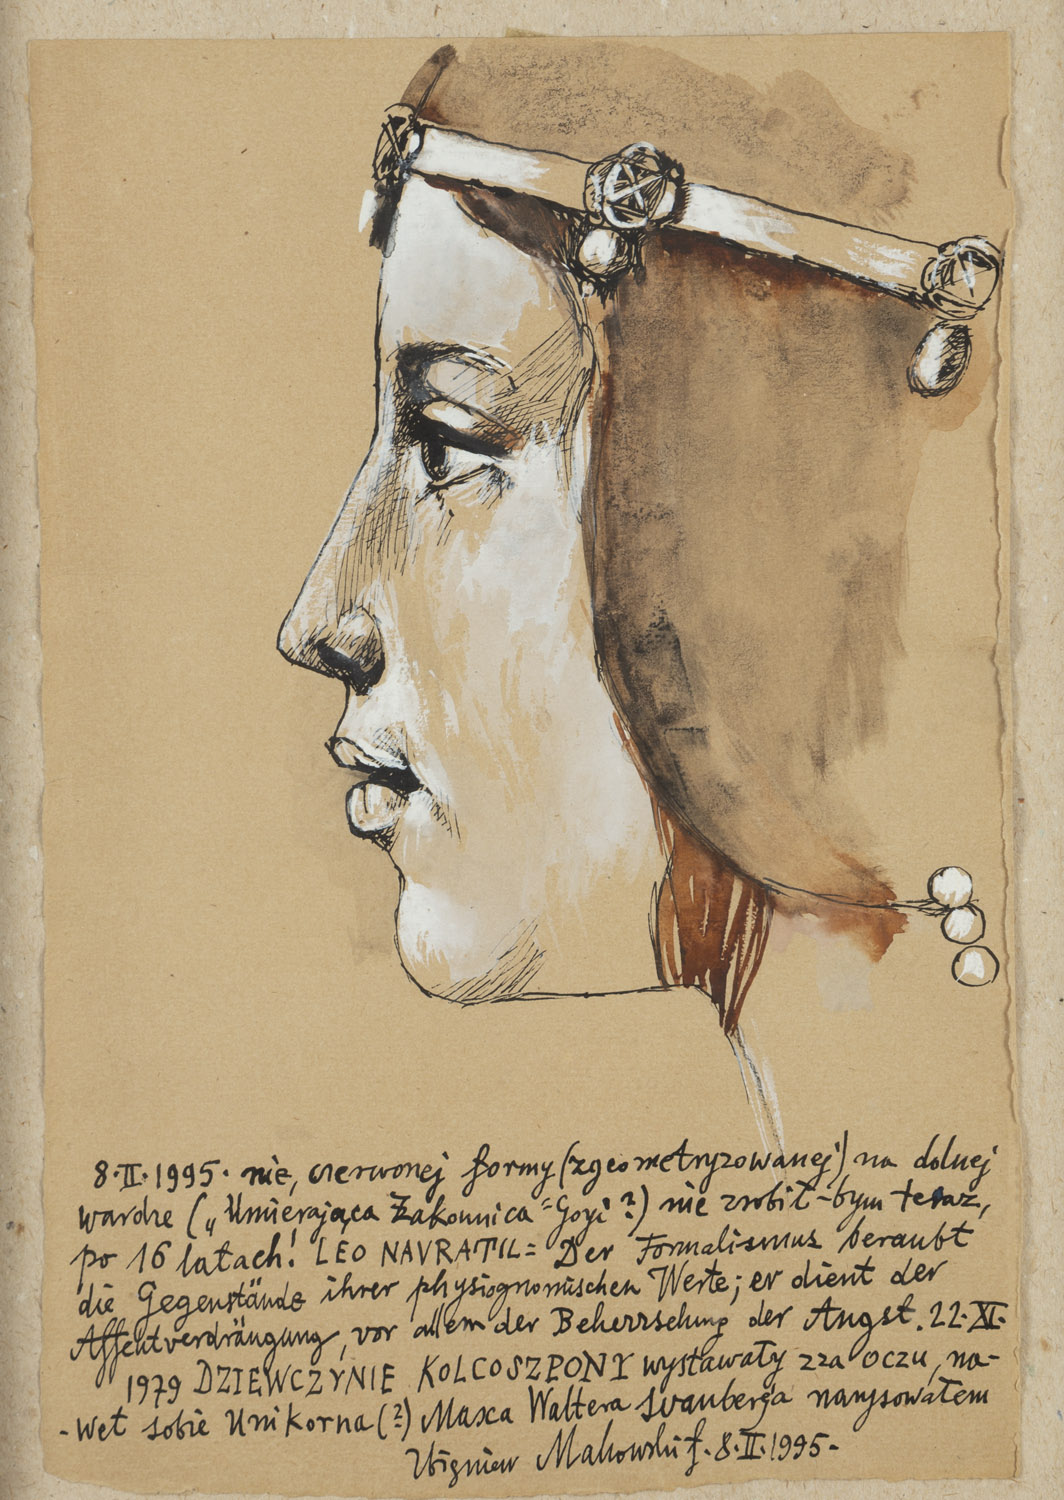 8·II·1995· nie, czerwonej formy (zgeometryzowanej) na dolnej
wardze („Umierająca Zakonnica" Goyi?) nie zrobił-bym teraz,
po 16 latach! LEO NAVRATIL: Der Formalismus beraubt
die Gegenstände ihrer physiognomischen Werte; er dient der
Affektverdrängung, vor allem der Beherrschung der Angst. 22·XI·
1979 DZIEWCZYNIE KOLCOSZPONY wystawały zza oczu, na-
-wet sobie Unikorna (?) Maxa Waltera Svanberga narysowałem
Zbigniew Makowski f. 8·II·1995-